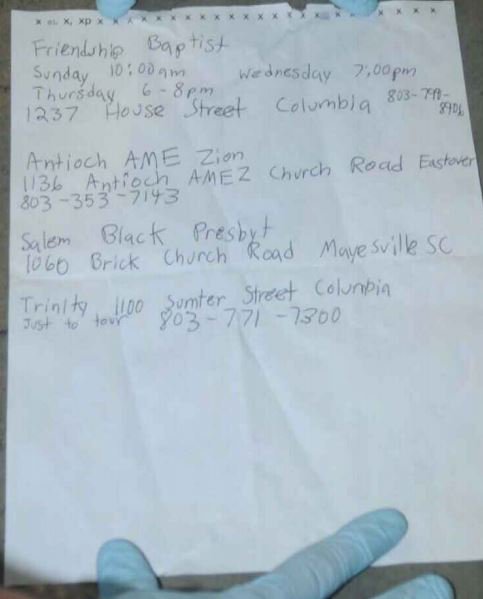 Friendship Baptist
Sunday 10:00am Wednesday 7:00pm
Thursday 6-8pm
1237 House Street Columbia 803-799-8406
Antioch AME Zion
1136 Antioch AMEZ Church Road Eastover
803-353-7143
Salem Black Presbyt
1060 Brick Church Road Mayesville SC
Trinity 1100 Sumter Street Columbia
Just to tour 803-771-7300